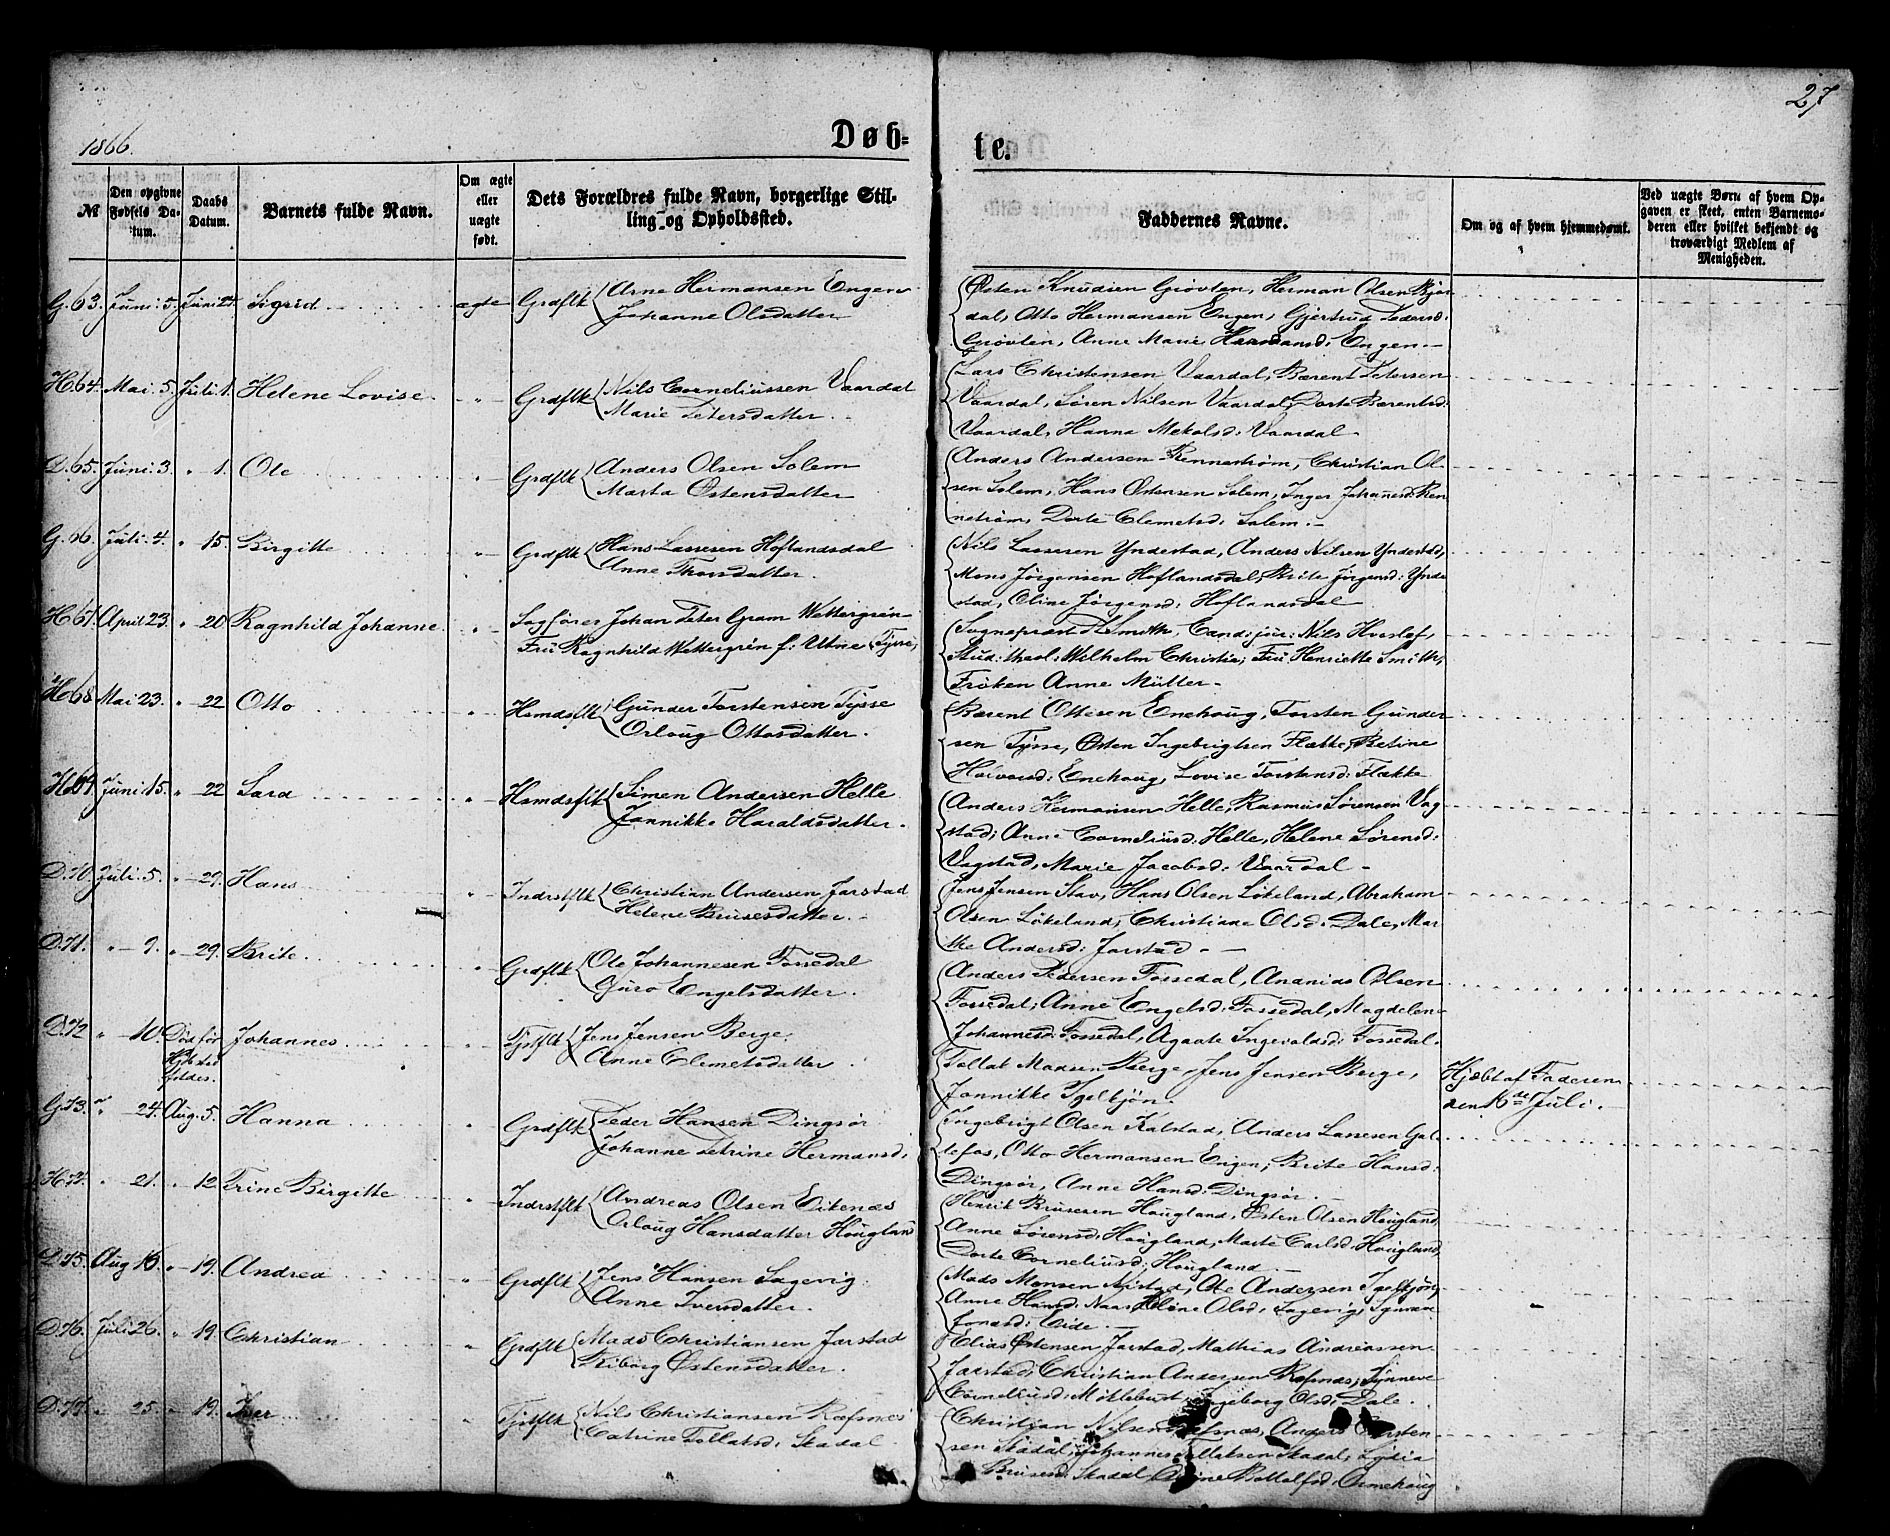 1866.
Døb=
te.
27
№
Den opgivne Fødsels Da-
tum.
Daabs
Datum.
Barnets fulde Navn.
Om ægte
eller
uægte
født.
Dets Forældres fulde Navn, borgerlige Stil-
ling og Opholdssted.
Faddernes Navne.
Om og af hvem hjemmedøbt.
Ved uægte Børn af hvem Op-
gaven er skeet, enten Barnemo-
deren eller hvilket bekjendt og
troværdigt Medlem af
Menigheden.
G. 63. Juni 5. Juni 24. Sigrid ægte Grdflk Arne Hermansen Engen
Johanne Olsdatter
Østen Knudsen Grøvlen, Herman Olsen Bjor-
dal, Otto Hermansen Engen, Gjertrud Pedersd:
Grøvlen, Anne Marie Hermansd: Engen.
H. 64. Mai 5. Juli 1. Helene Lovise " Grdflk Nils Corneliussen Vaardal
Marie Petersdatter.
Lars Christensen Vaardal, Bærent Petersen
Vaardal, Søren Nilsen Vaardal, Dorte Bærentsd:
Vaardal, Hanna Mekalsd: Vaardal
D. 65. Juni 3. " 1. Ole " Grdflk Anders Olsen Solem
Marta Østensdatter
Anders Andersen Rennestrøm, Christian Ol-
sen Solem, Hans Østensen Solem, Inger Johannesd: Ren-
nestrøm, Dorte Clemetsd: Solem.
G. 66. Juli 4. " 15. Birgitte " Grdflk Hans Lassesen Hoflandsdal
Anne Thorsdatter.
Nils Lassesen Yndestad, Anders Nilsen Yndestad,
Mons Jørgensen Hoflandsdal, Brite Jørgensd: Ynde-
stad, Oline Jørgensd: Hoflandsdal
H. 67. April 23. " 20 Ragnhild Johanne " Sagfører Johan Peter Gram Wettergrén
Fru Ragnhild Wettergrén f: Utne (Tysse)
Sogneprest Smith, Cand: jur: Nils Hvoslef,
Stud: theol: Wilhelm Christie, Fru Henriette Smith,
Frøken Anne Müller
H. 68 Mai 23. " 22 Otto " Hsmdsflk Gunder Torstensen Tysse
Orloug Ottosdatter.
Bærent Ottesen Enehoug, Torsten Gunder-
sen Tysse, Østen Ingebrigtsen Flække, Betine
Halvorsd: Enehoug, Lovise Torstensd: Flække
H. 69. Juni 15. " 22 Sara " Hsmdsflk Simen Andersen Helle
Jannikke Haraldsdatter.
Anders Hermansen Helle, Rasmus Sørensen Vag-
stad; Anne Corneliusd: Helle, Helene Sørensd:
Vagstad, Marie Jacobsd: Vaardal
D. 70. Juli 5. " 29. Hans " Indrstflk Christian Andersen Jarstad
Helene Brusesdatter.
Jens Jensen Stav, Hans Olsen Løkeland, Abraham
Olsen Løkeland, Christiane Olsd: Dale, Mar-
the Andersd: Jarstad
D. 71. " 9. " 29. Brite " Grdflk Ole Johannesen Fossedal
Guro Engelsdatter.
Anders Pedersen Fossedal, Ananias Olsen
Fossedal, Anne Engelsd: Fossedal, Magdelen-
Johannesd: Fossedal, Agaate Ingevaldsd: Fossedal.
D. 72 " 10. Død før Johannes " Tjstflk Jens Jensen Berge
Anne Clemetsdatter
Tollak Madsen Berge, Jens Jensen Berge,
Jannikke Igelkjøn.
Hjdbt af Faderen
den 16de Juli.
G. 73. " 24. Aug. 5. Hanna " Grdflk Peder Hansen Dingsør
Johanne Petrine Hermansd.
Ingebrigt Olsen Kalstad, Anders Lassesen Gul-
lefos, Otto Hermansen Engen, Brite Hansd:
Dingsør, Anne Hansd: Dingsør.
H. 74. " 21. " 12 Trine Birgitte " Indrstflk Andreas Olsen Eikenæs
Orloug Hansdatter Hougland
Henrik Brusesen Hougland, Østen Olsen Hougland,
Anne Sørensd: Hougland, Marte Carlsd: Hougland,
Dorte Corneliusd: Hougland.
D. 75. Aug 16. " 19. Andrea " Grdflk Jens Hansen Sagevig
Anne Iversdatter.
Mads Monsen Nistad, Ole Andersen Igelkjøn,
Anne Hansd: Helene Olsd: Sagevig,
Eide.
D. 76. Juli 26. " 19. Christian " Grdflk Mads Christiansen Jarstad
Riborg Østensdatter.
Elias Østensen Jarstad, Mathias Andreassen
Jarstad, Christian Andersen Rafnæs, Synneve
Corneliusd: Myklebust, Ingeborg Olsd: Dale.
D. 77. " 25. " 19. Iver " Tjstflk Nils Christiansen Ræfsnes
Catrine Tollaksd: Skadal
Christian Nilsen Ræfsnæs, Anders Torsten-
sen Skadal, Johannes Tollaksen Skadal, Lydia
Brusesd: Skadal, Bottolfsd: